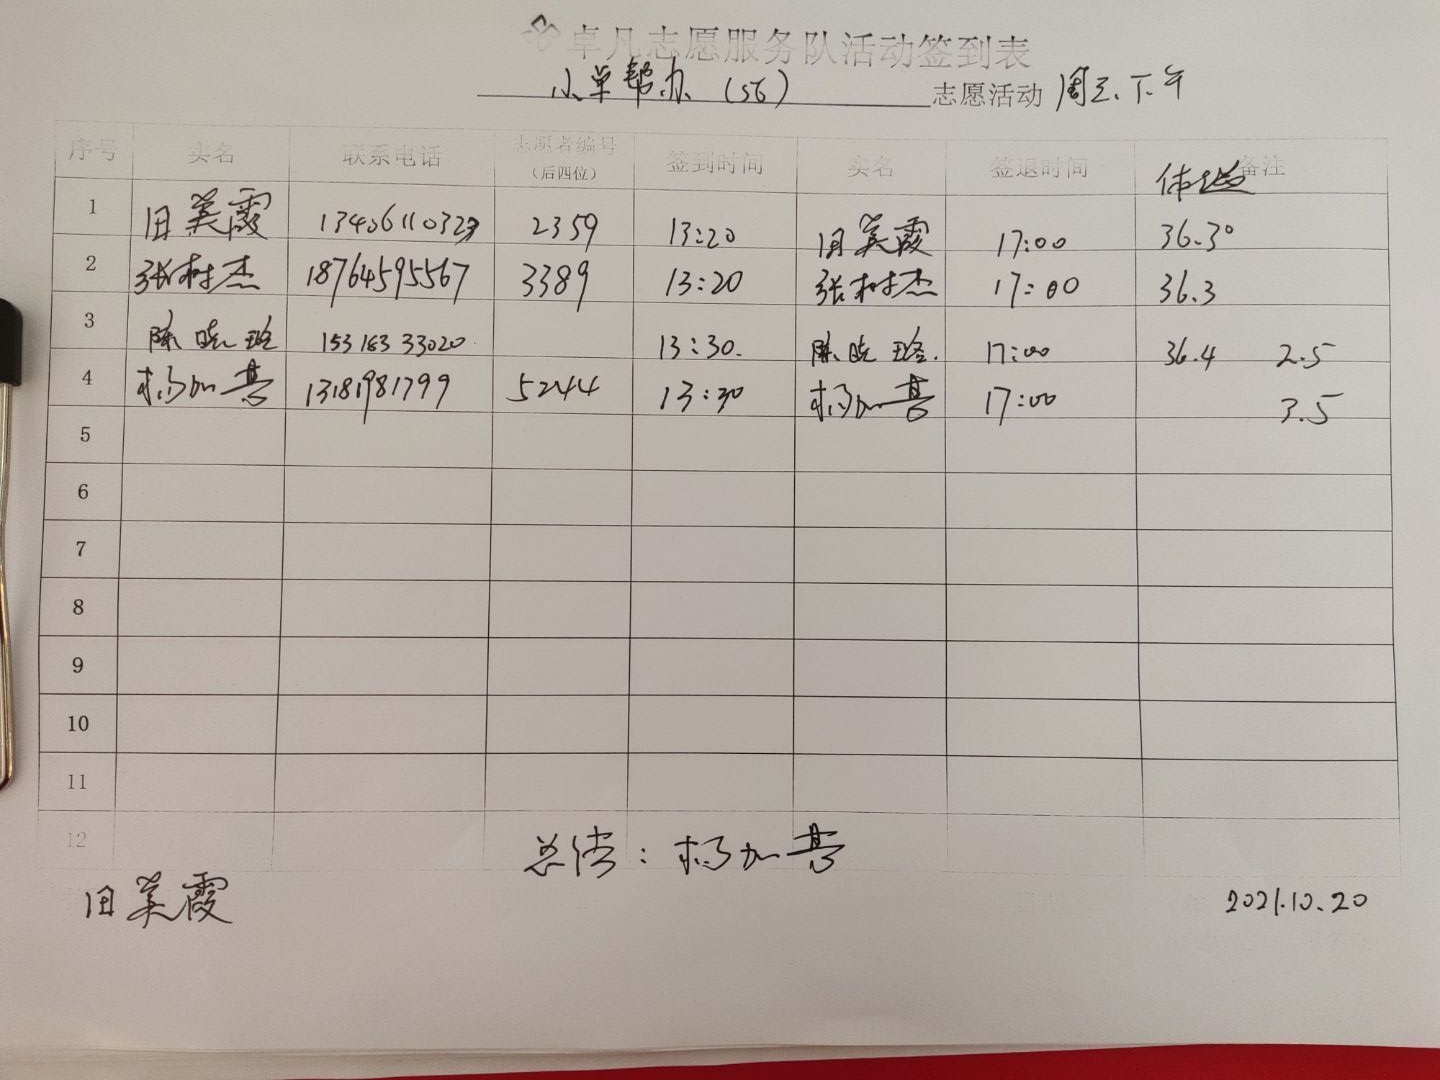 卓凡志愿服务队活动签到表
小草帮办（56） 志愿活动 周三、下午
序号 实名 联系电话 志愿者编号（后四位） 签到时间 实名 签退时间 体温 备注
1 田美霞 2359 13:20 田美霞 17:00 36.3°
2 张树杰 18764595567 3389 13:20 张树杰 17:00 36.3
3 陈晓 15318333020 13:30. 陈晓 17:00 36.4 2.5
4 杨加喜 13181981799 5244 13:30 杨加喜 17:00 3.5
5
6
7
8
9
10
11
12
总结：杨加喜
田美霞
2021.10.20